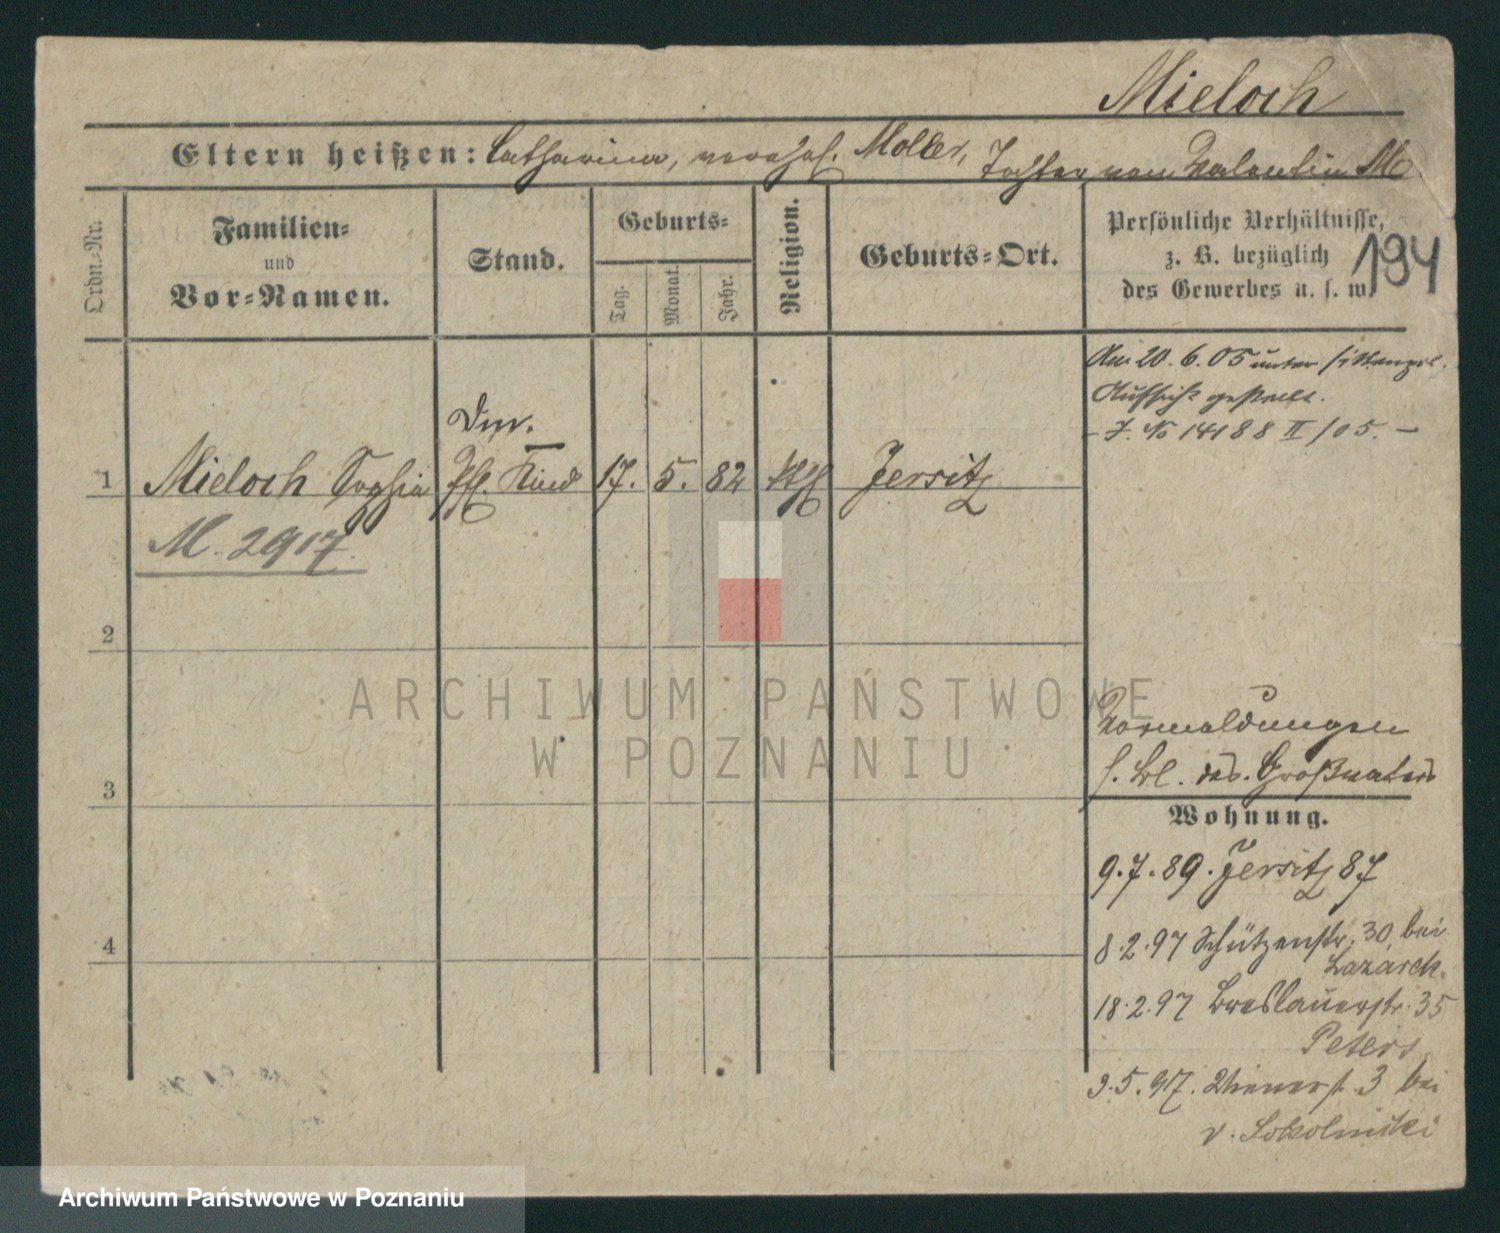 Mieloch
Eltern heißen: Catharina, verehel. Moller, Tochter von Valentin M.
Ordn.-Nr.
Familien-
und
Vor-Namen.
Stand.
Geburts-
Tag.
Monat.
Jahr.
Religion.
Geburts-Ort.
Persönliche Verhältnisse,
z. B. bezüglich
des Gewerbes u. s. w.
194
Am 20.6.05 unter sittenpol.
Aufsicht gestellt.
- J. No 14188 II/05. -
1 Mieloch Sophia Kind 17. 5. 82 kth Jersitz
M. 2917.
2
3
4
Vormeldungen
s. Bl. des Großvaters
Wohnung.
9.7.89. Jersitz 87
8.2.97 Schützenstr. 30, bei
Lazarek.
18.2.97 Breslauerstr. 35
Peters
3.5.97. Wienerst. 3 bei
v. Sokolnicki
ARCHIWUM PAŃSTWOWE
W POZNANIU
Archiwum Państwowe w Poznaniu